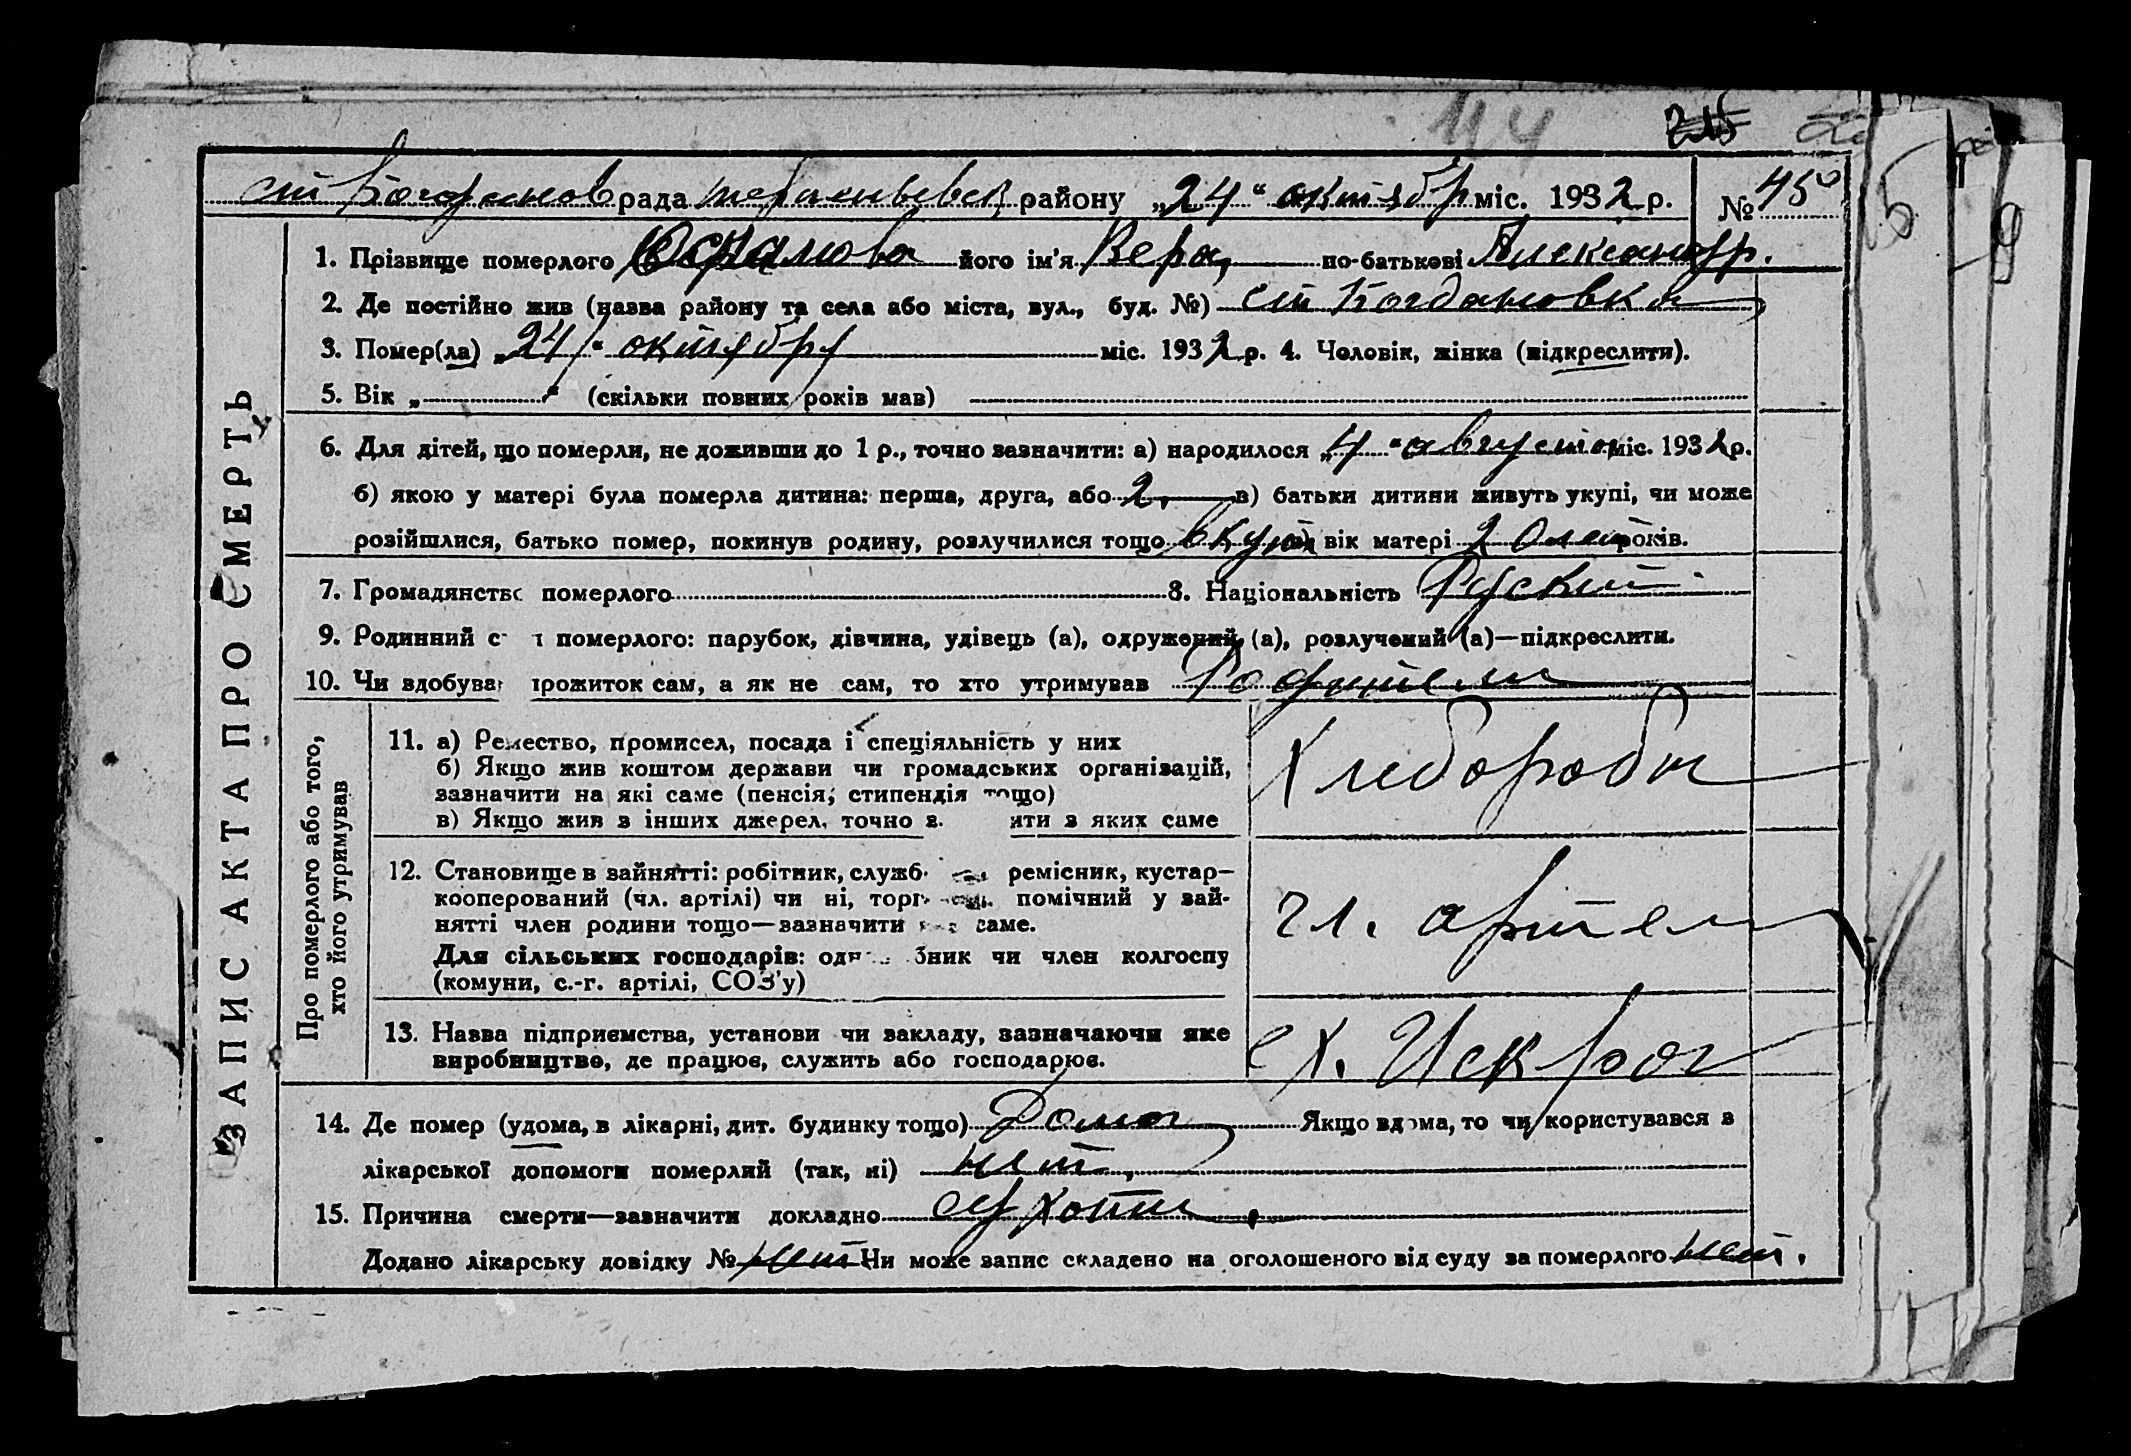 114 215
ст Богданов рада района „24“ октябр міс. 1932 р. № 45
1. Прізвище померлого його ім'я Вера, по-батькові Александр.
2. Де постійно жив (назва району та села або міста, вул., буд. №) ст Богдановка
3. Помер(ла) „24“ октябр міс. 1932 р. 4. Чоловік, жінка (підкреслити).
5. Вік „ “ (скільки повних років мав)
6. Для дітей, що померли, не доживши до 1 р., точно зазначити: а) народилося „4“ августа міс. 1932 р.
б) якою у матері була померла дитина: перша, друга, або 2, в) батьки дитини живуть укупі, чи може
розійшлися, батько помер, покинув родину, розлучилися тощо вкупі вік матері 20 лет років.
7. Громадянство померлого 8. Національність Руский
9. Родинний с т померлого: парубок, дівчина, удівець (а), одружений (а), розлучений (а)—підкреслити.
10. Чи здобував прожиток сам, а як не сам, то хто утримував Родители
ЗАПИС АКТА ПРО СМЕРТЬ
Про померлого або того,
хто його утримував
11. а) Ремество, промисел, посада і спеціяльність у них
б) Якщо жив коштом держави чи громадських організацій,
зазначити на які саме (пенсія, стипендія тощо)
в) Якщо жив з інших джерел, точно з ити з яких саме
Хлебороби
12. Становище в зайнятті: робітник, служб ремісник, кустар—
кооперований (чл. артілі) чи ні, торг помічний у зай-
нятті член родини тощо—зазначити саме.
Для сільських господарів: одн бник чи член колгоспу
(комуни, с.-г. артілі, СОЗ'у)
чл. артели
13. Назва підприємства, установи чи закладу, зазначаючи яке
виробництво, де працює, служить або господарює.
ех. Искра
14. Де помер (удома, в лікарні, дит. будинку тощо) Дома Якщо вдома, то чи користувався з
лікарської допомоги померлий (так, ні) нет,
15. Причина смерти—зазначити докладно сухоти.
Додано лікарську довідку № нет Чи може запис складено на оголошеного від суду за померлого нет.